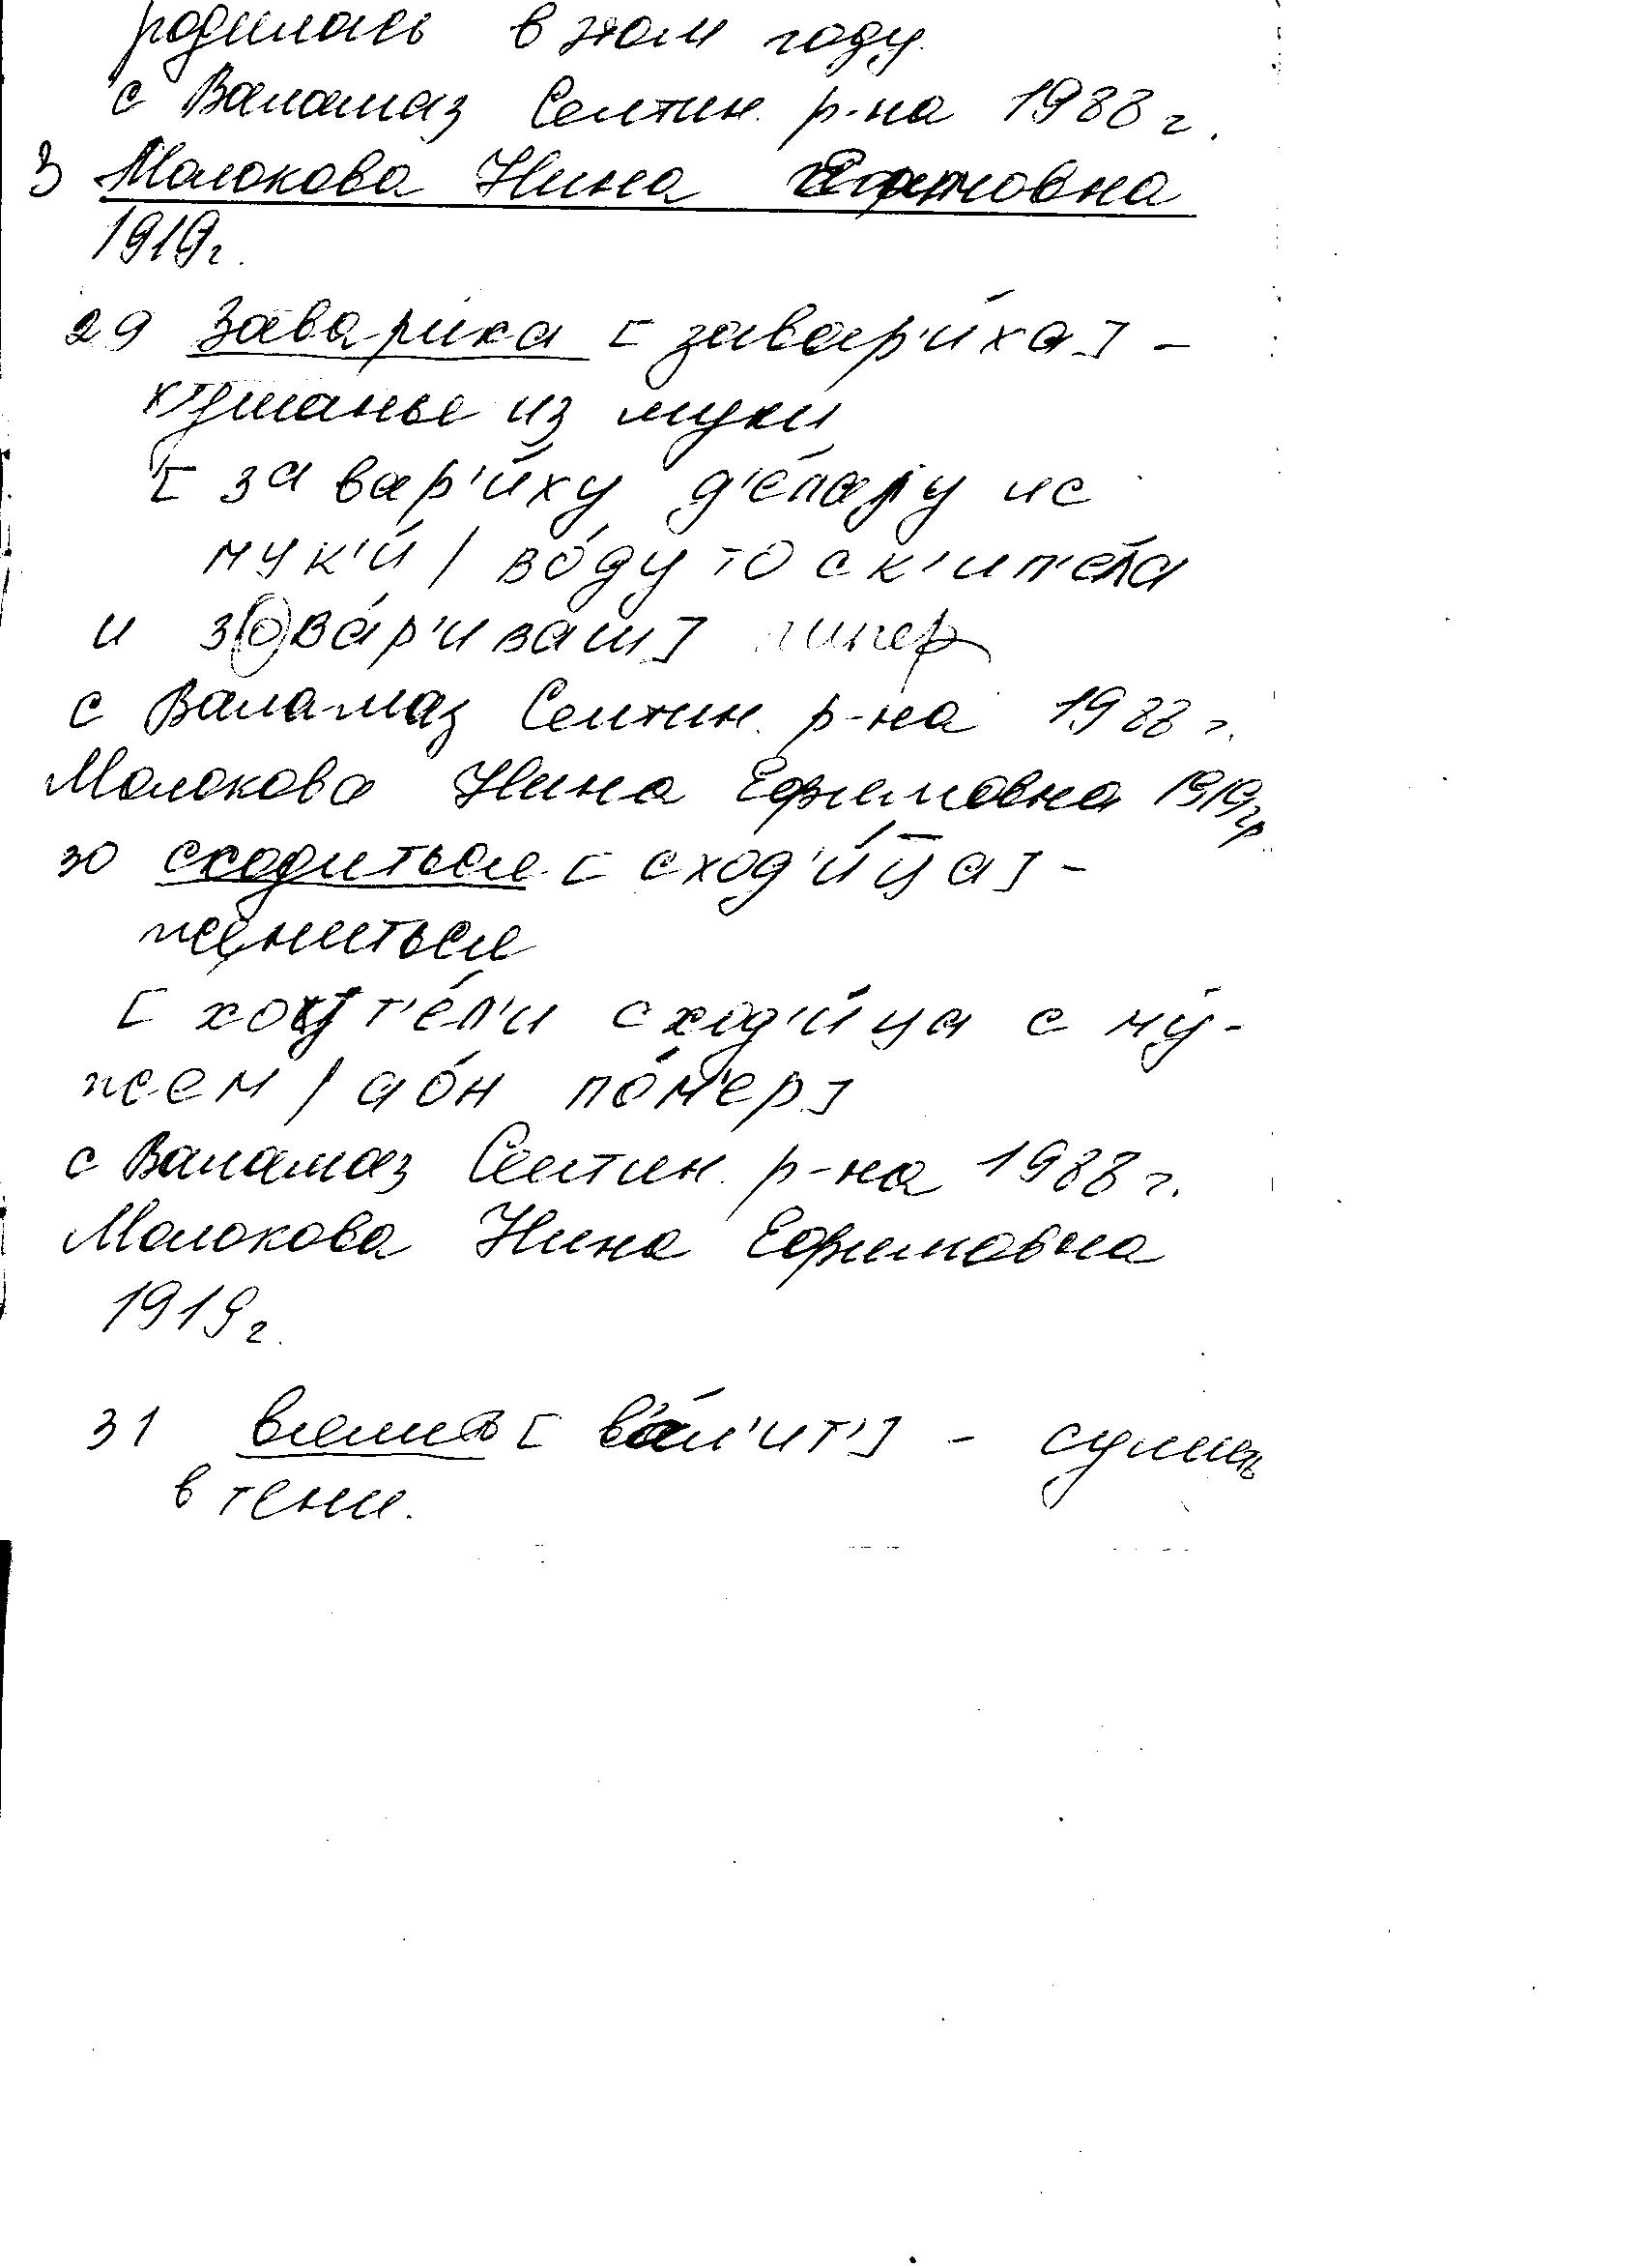 родилась в этом году.
с Валамаз Селтин. р-на 1988 г.
3 Молокова Нина Ефимовна
1919г.
29 Завариха [завар'и́ха] –
кушанье из муки
[завар'и́ху д'е́лаjу ис
мук'и́ / во́ду то ск'ип'ела
и зова́р'иваш]
с Валамаз Селтин. р-на 1988 г.
Молокова Нина Ефимовна 1919гр.
30 сходиться [сход'и́ц̄а] –
жениться
[хот'е́л'и сход'и́ца с му́-
жем / а о́н по́м'ер]
с Валамаз Селтин. р-на 1988 г.
Молокова Нина Ефимовна
1919г.
31 вялить [в'а́л'ит'] – сушить
в тени.